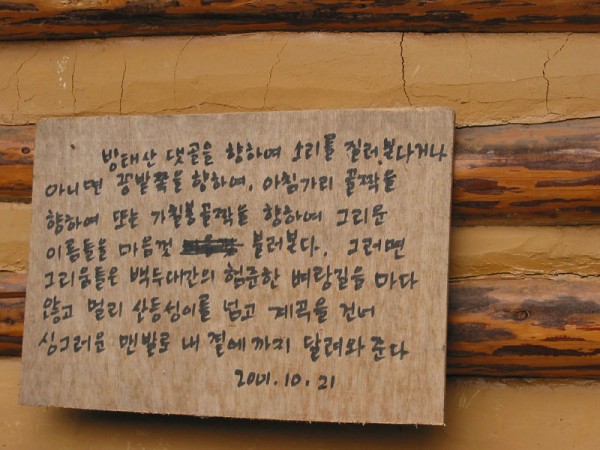 방태산 댓골을 향하여 소리를 질러본다거나
아니면 콩밭쪽을 향하여, 아침가리 골짝을
향하여 또는 가칠봉골짝을 향하여 그리운
이름들을 마음껏 불러본다. 그러면
그리움들은 백두대간의 험준한 벼랑길을 마다
않고 멀리 산등성이를 넘고 계곡을 건너
싱그러운 맨발로 내 곁에까지 달려와 준다
2001.10.21